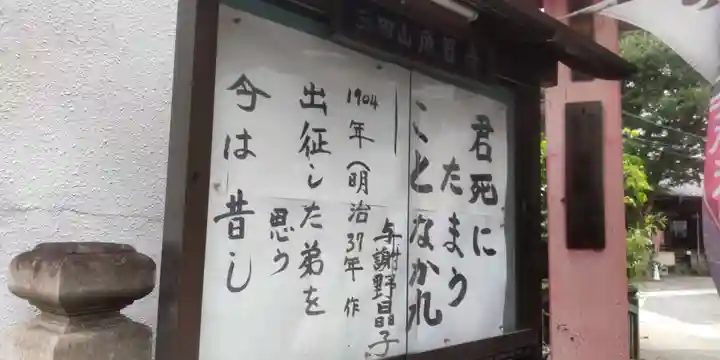 君死に
たまう
ことなかれ
与謝野晶子
1904年(明治37年 作
出征した弟を
思う
今は昔し